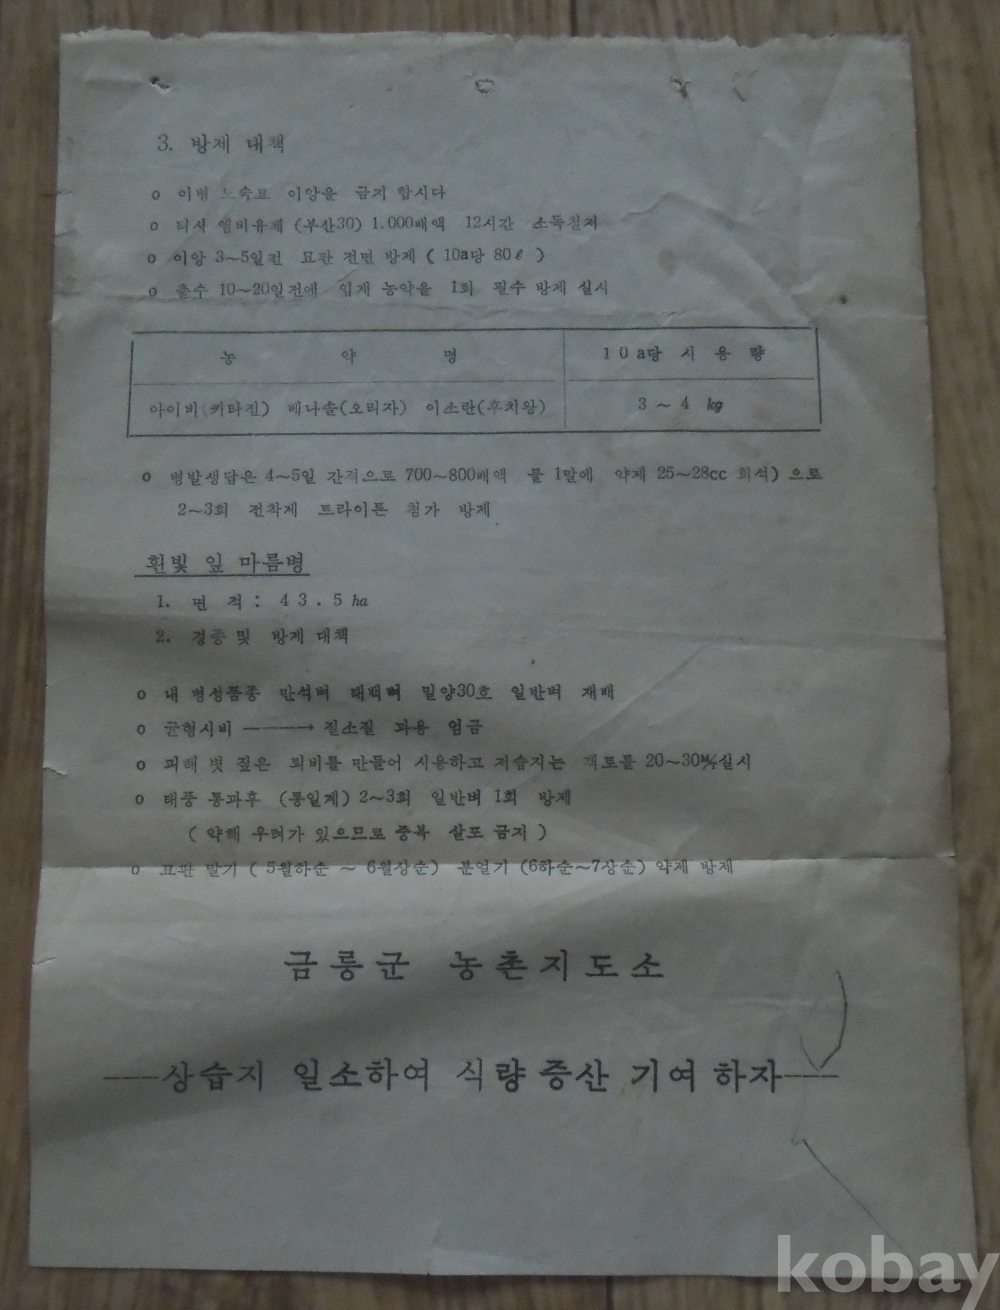 3. 방제 대책
o 이병 노숙묘 이앙을 금지 합시다
o 티시 엠비유제 (부산30) 1.000배액 12시간 소독철저
o 이앙 3~5일전 묘판 전면 방제 ( 10a당 80ℓ )
o 출수 10~20일전에 입제 농약을 1회 필수 방제 실시
농 약 명 10a당 시 용 량
아이비(키타진) 베나솔(오리자) 이소란(후치왕) 3 ~ 4 kg
o 병발생답은 4~5일 간격으로 700~800배액 물 1말에 약제 25~28cc 희석) 으로
2~3회 전착제 트라이톤 첨가 방제
흰빛 잎 마름병
1. 면 적 : 43.5 ha
2. 경종 및 방제 대책
o 내 병성품종 만석벼 태백벼 밀양30호 일반벼 재배
o 균형시비 ———→ 질소질 과용 엄금
o 피해 볏 짚은 퇴비를 만들어 시용하고 저습지는 객토를 20~30%실시
o 태풍 통과후 (통일계) 2~3회 일반벼 1회 방제
( 약해 우려가 있으므로 중복 살포 금지 )
o 묘판 말기 ( 5월하순 ~ 6월상순) 분얼기 (6하순~7상순) 약제 방제
금릉군 농촌지도소
——상습지 일소하여 식량 증산 기여 하자——
kobay